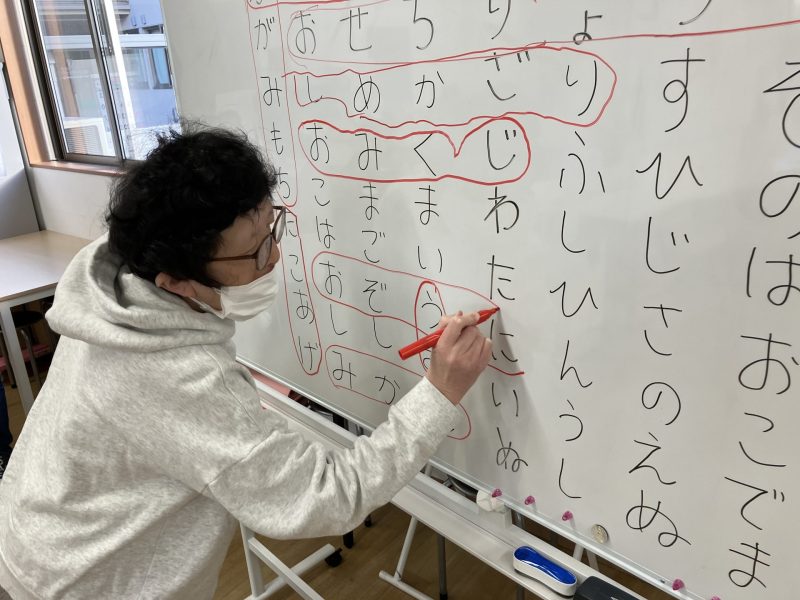 がおせちりょ
みしめかざりすそ
もおみくじふひの
ちこままわしじは
たはごいたひさお
こおぞうにんのこ
あししいうえで
げみかぬしぬま